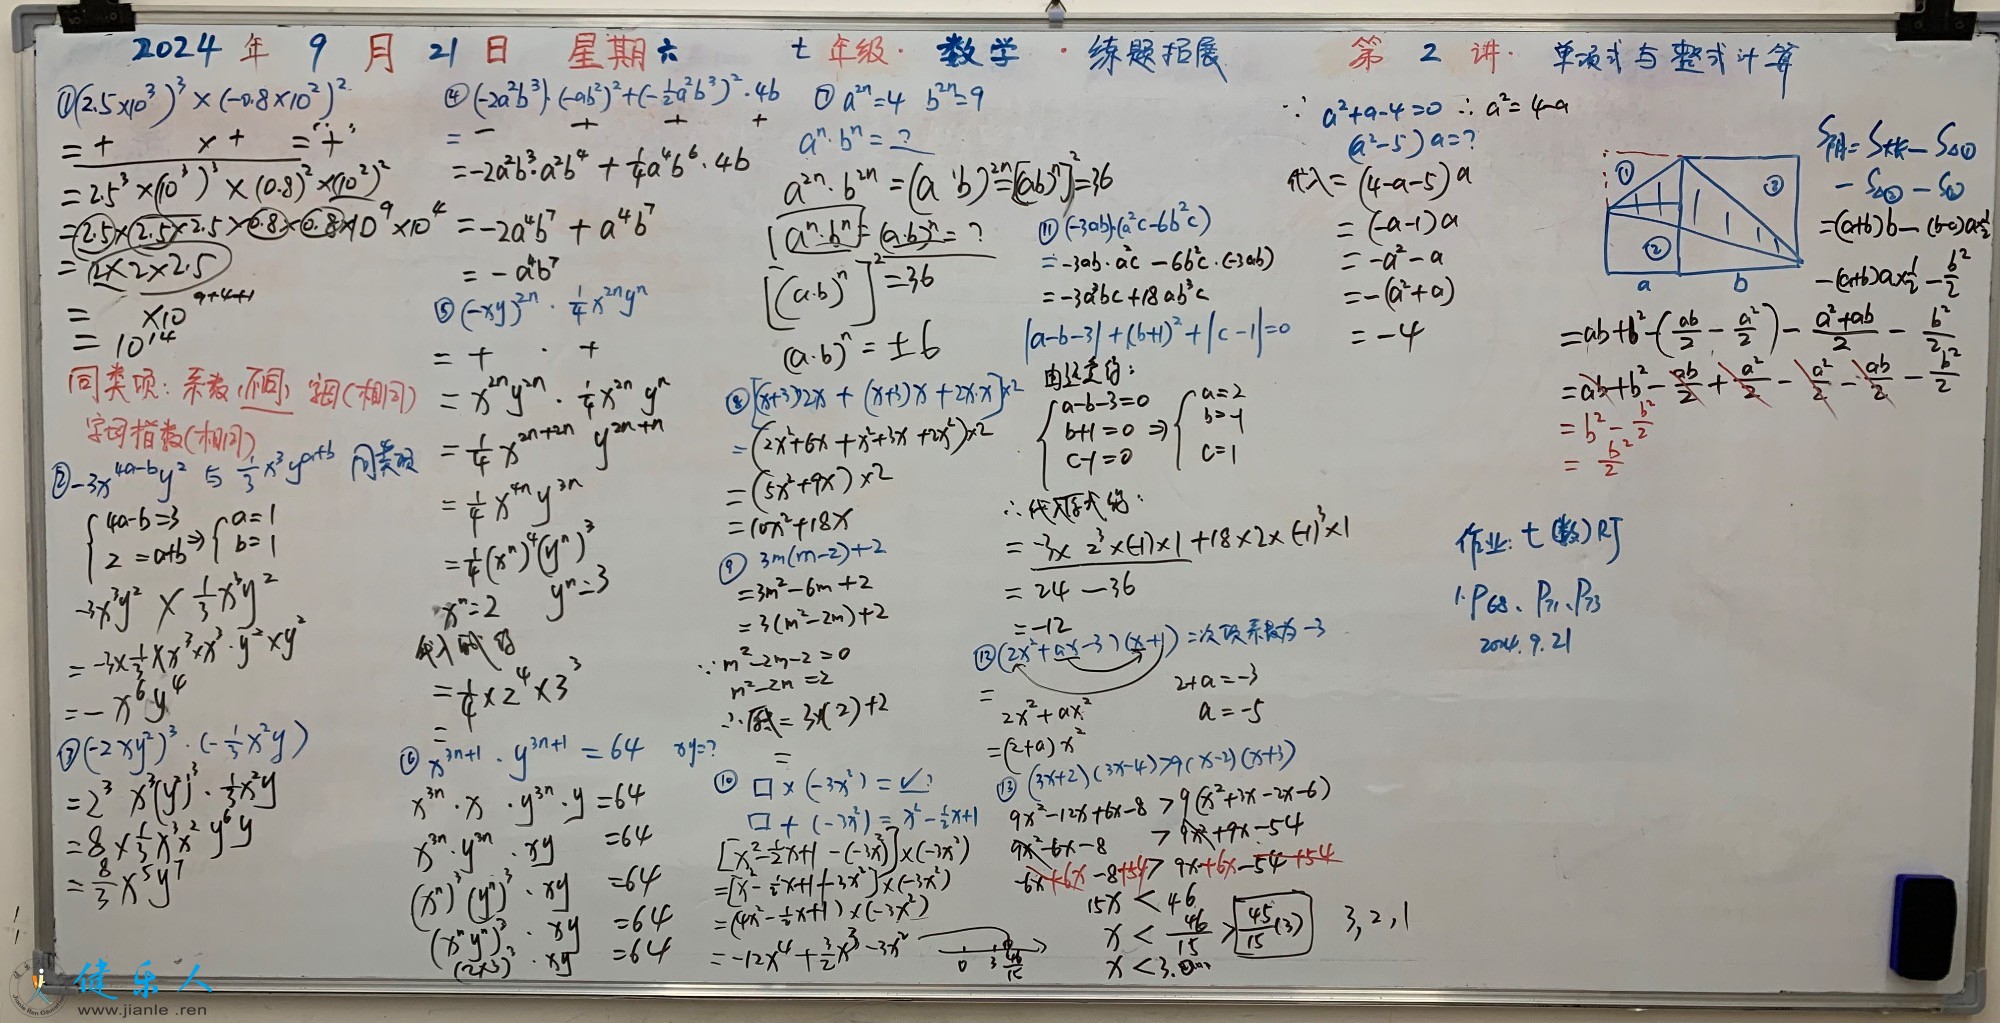 2024年9月21日 星期六 七年级·数学·练题拓展 第2讲·单项式与整式计算
①(2.5×10³)³×(-0.8×10²)²
=+ ×+ =“+”
=2.5³×(10³)³×(0.8)²×(10²)²
=2.5×2.5×2.5×0.8×0.8×10⁹×10⁴
=2×2×2.5
= ×10⁹⁺⁴⁺¹
=10¹⁴
同类项:系数(不同),字母(相同)
字母指数(相同)
②-3x⁴ᵃ⁻ᵇy²与⅓x³yᵃ⁺ᵇ同类项
{4a-b=3 2=a+b ⇒ {a=1 b=1
-3x³y² × ⅓x³y²
=-3×⅓×x³×x³·y²×y²
=-x⁶y⁴
③(-2xy²)³·(-⅓x²y)
=2³x³(y²)³·⅓x²y
=8×⅓x³x²y⁶y
=8/3x⁵y⁷
④(-2a²b³)·(-ab²)²+(-½a²b³)²·4b
= - + + +
=-2a²b³·a²b⁴+¼a⁴b⁶·4b
=-2a⁴b⁷+a⁴b⁷
=-a⁴b⁷
⑤(-xy)²ⁿ·¼x²ⁿyⁿ
=+ · +
=x²ⁿy²ⁿ·¼x²ⁿyⁿ
=¼x²ⁿ⁺²ⁿy²ⁿ⁺ⁿ
=¼x⁴ⁿy³ⁿ
=¼(xⁿ)⁴(yⁿ)³
xⁿ=2 yⁿ=3
代入
=¼×2⁴×3³
=
⑥x³ⁿ⁺¹·y³ⁿ⁺¹=64 xy=?
x³ⁿ·x·y³ⁿ·y=64
x³ⁿ·y³ⁿ·xy=64
(xⁿ)³(yⁿ)³·xy=64
(xⁿyⁿ)³·xy=64
(2×3)³·xy=64
⑦a²ⁿ=4 b²ⁿ=9
aⁿ·bⁿ=?
a²ⁿ·b²ⁿ=(a·b)²ⁿ=[(ab)ⁿ]²=36
aⁿ·bⁿ=(a·b)ⁿ=?
[(a·b)ⁿ]²=36
(a·b)ⁿ=±6
⑧[(x+3)2x+(x+3)x+2x·x]×2
=(2x²+6x+x²+3x+2x²)×2
=(5x²+9x)×2
=10x²+18x
⑨3m(m-2)+2
=3m²-6m+2
=3(m²-2m)+2
∵m²-2m-2=0
m²-2m=2
∴原式=3×(2)+2
=
⑩□×(-3x²)=✓?
□+(-3x²)=x²-½x+1
[x²-½x+1-(-3x²)]×(-3x²)
=[x²-½x+1+3x²]×(-3x²)
=(4x²-½x+1)×(-3x²)
=-12x⁴+3/2x³-3x²
0 3 46/15
⑪(-3ab)·(a²c-6b²c)
=-3ab·a²c-6b²c·(-3ab)
=-3a³bc+18ab³c
|a-b-3|+(b+1)²+|c-1|=0
由题意得:
{a-b-3=0 b+1=0 c-1=0 ⇒ {a=2 b=-1 c=1
∴代入原式得:
=-3×2³×(-1)×1+18×2×(-1)³×1
=24-36
=-12
⑫(2x²+ax-3)(x+1)二次项系数为-3
=
2x²+ax²
=(2+a)x²
2+a=-3
a=-5
⑬(3x+2)(3x-4)>9(x-2)(x+3)
9x²-12x+6x-8>9(x²+3x-2x-6)
9x²-6x-8>9x²+9x-54
-6x+6x-8+54>9x+6x-54+54
15x<46
x<46/15>45/15(3) 3,2,1
x<3.
∵a²+a-4=0 ∴a²=4-a
(a²-5)a=?
代入=(4-a-5)a
=(-a-1)a
=-a²-a
=-(a²+a)
=-4
① ② ③
a b
S阴=S大长-S△①
-S△②-S③
=(a+b)b-(b-a)a×½
-(a+b)a×½-b²/2
=ab+b²-(ab/2-a²/2)-(a²+ab)/2-b²/2
=ab+b²-ab/2+a²/2-a²/2-ab/2-b²/2
=b²-b²/2
=b²/2
作业:七(数)RJ
1.P68、P71、P73
2024.9.21
健乐人
www.jianle.ren